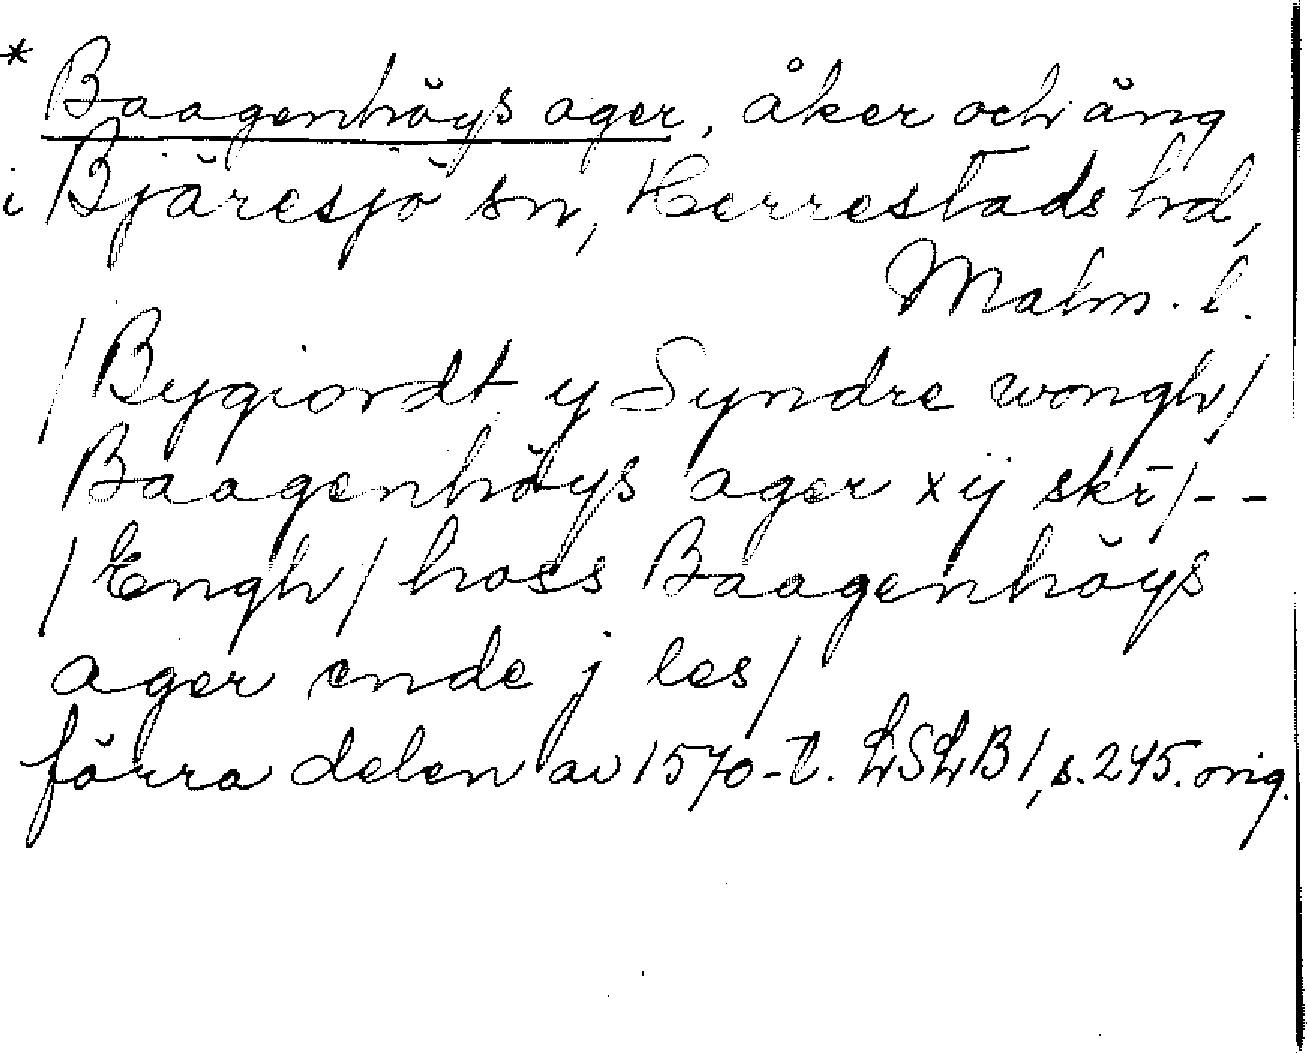 * Baagenhöys ager, åker och äng
i Bjäresjö sn, Herrestads hd,
Malm. l.
/Bygiordt y Syndre wongh/
Baagenhöys ager xij skr̄/--
/Engh/ hoss Baagenhöys
ager ende j les/
förra delen av 1570-t. LSLB 1, s. 245. orig.